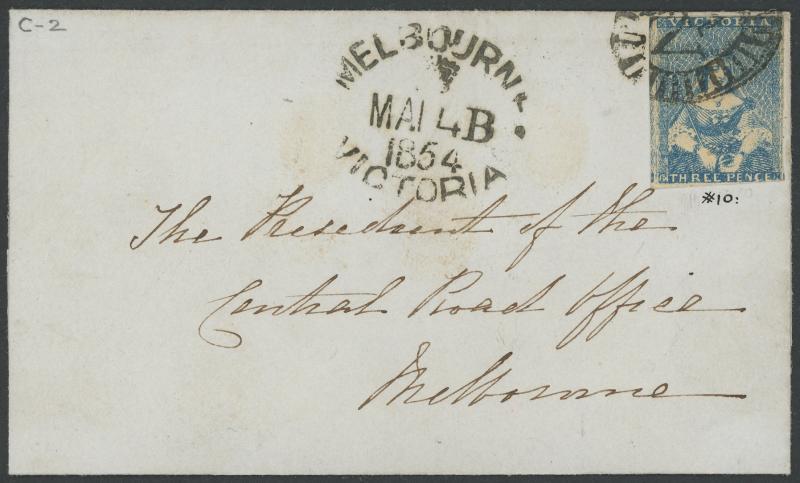 C-2
VICTORIA
MELBOURNE
MA 14 B
1854
VICTORIA
THREE PENCE
#10:
The President of the
Central Road Office
Melbourne